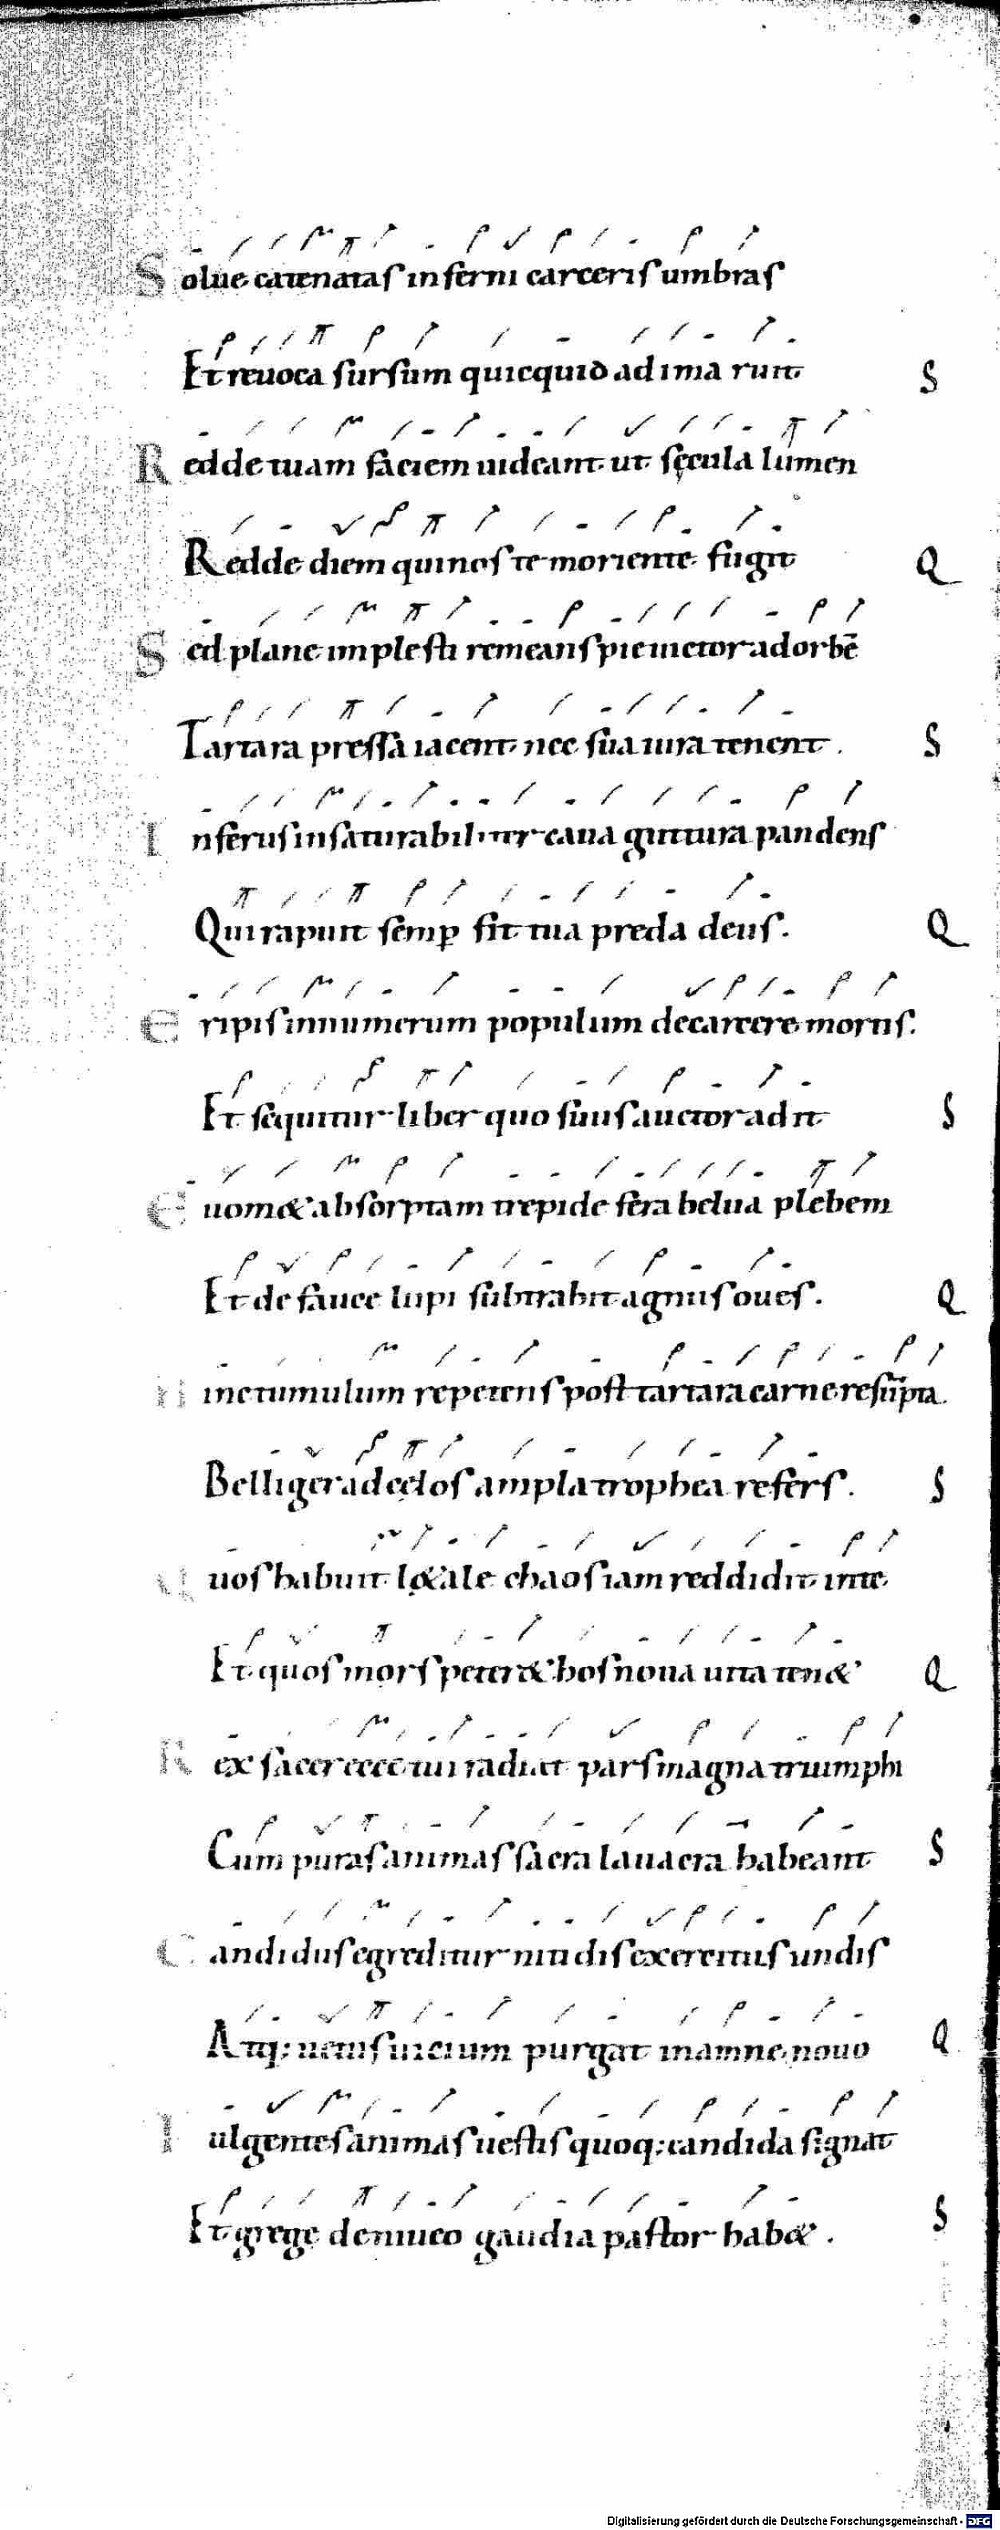 Solue catenatas inferni carceris umbras
Et reuoca sursum quicquid ad ima ruit S
Redde tuam faciem uideant ut sęcula lumen
Redde diem qui nos te moriente fugit Q
Sed plane implesti remeans pie uictor ad orbē
Tartara pressa iacent nec sua iura tenent. S
Inferus insaturabiliter caua guttura pandens
Qui rapuit semp fit tua preda deus. Q
Eripis innumerum populum de carcere mortis.
Et sequitur liber quo suus auctor adit S
Euom& absorptam trepide fera belua plebem
Et de fauce lupi subtrahit agnus oues. Q
Hinc tumulum repetens post tartara carne resūpta.
Belliger ad cęlos ampla trophea refers. S
Quos habuit pęnale chaos iam reddidit in te
Et quos mors peter& hos noua uita ten& Q
Rex sacer ecce tui radiat pars magna triumphi
Cum puras animas sacra lauacra habeant S
Candidus egreditur nitidis exercitus undis
Atq; uetus uicium purgat in amne nouo Q
Fulgentes animas uestis quoq; candida signat
Et grege de niueo gaudia pastor hab&. S
Digitalisierung gefördert durch die Deutsche Forschungsgemeinschaft - DFG